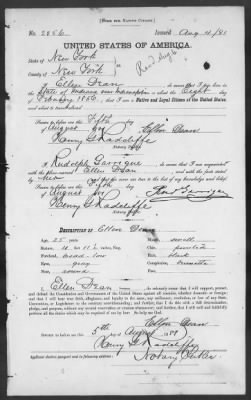 [FORM FOR NATIVE CITIZEN.]
No. 2856 Issued Aug 4/80
UNITED STATES OF AMERICA.
State of New York
County of New York
I, Ellen Dean, do swear that I was born in the
State of on or about the Eight day
of February 1856; that I am a Native and Loyal Citizen of the United States,
and about to travel abroad
Sworn to before me, this Fifth day
of August
Henry G. Radcliffe
Ellen Dean
Notary Public
I, Rudolph Garrigue, do swear that I am acquainted
with the above-named Ellen Dean and with the facts above stated
by and that the same are true to the best of my knowledge and belief.
Sworn to before me, this Fifth day
of August
Henry G. Radcliffe
Notary Public
DESCRIPTION OF Ellen Dean
Age: 25 years Mouth: small
Stature: 4 ft 11 ½ inches, Eng. Chin: pointed
Forehead: broad-low Hair: black
Eyes: gray Complexion: brunette
Nose: Face:
I, Ellen Dean, do solemnly swear that I will support, protect, and
defend the Constitution and Government of the United States against all enemies, whether domestic or foreign; and
that I will bear true faith, allegiance, and loyalty to the same, any ordinance, resolution or law of any State,
Convention, or Legislature to the contrary notwithstanding; and further, that I do this with a full determination,
pledge, and purpose, without any mental reservation or evasion whatsoever; and further, that I will well and faithfully perform
all the duties which may be required of me by law: So help me God.
Ellen Dean
Sworn to before me, this 5th day
of August
Henry G. Radcliffe
Notary Public